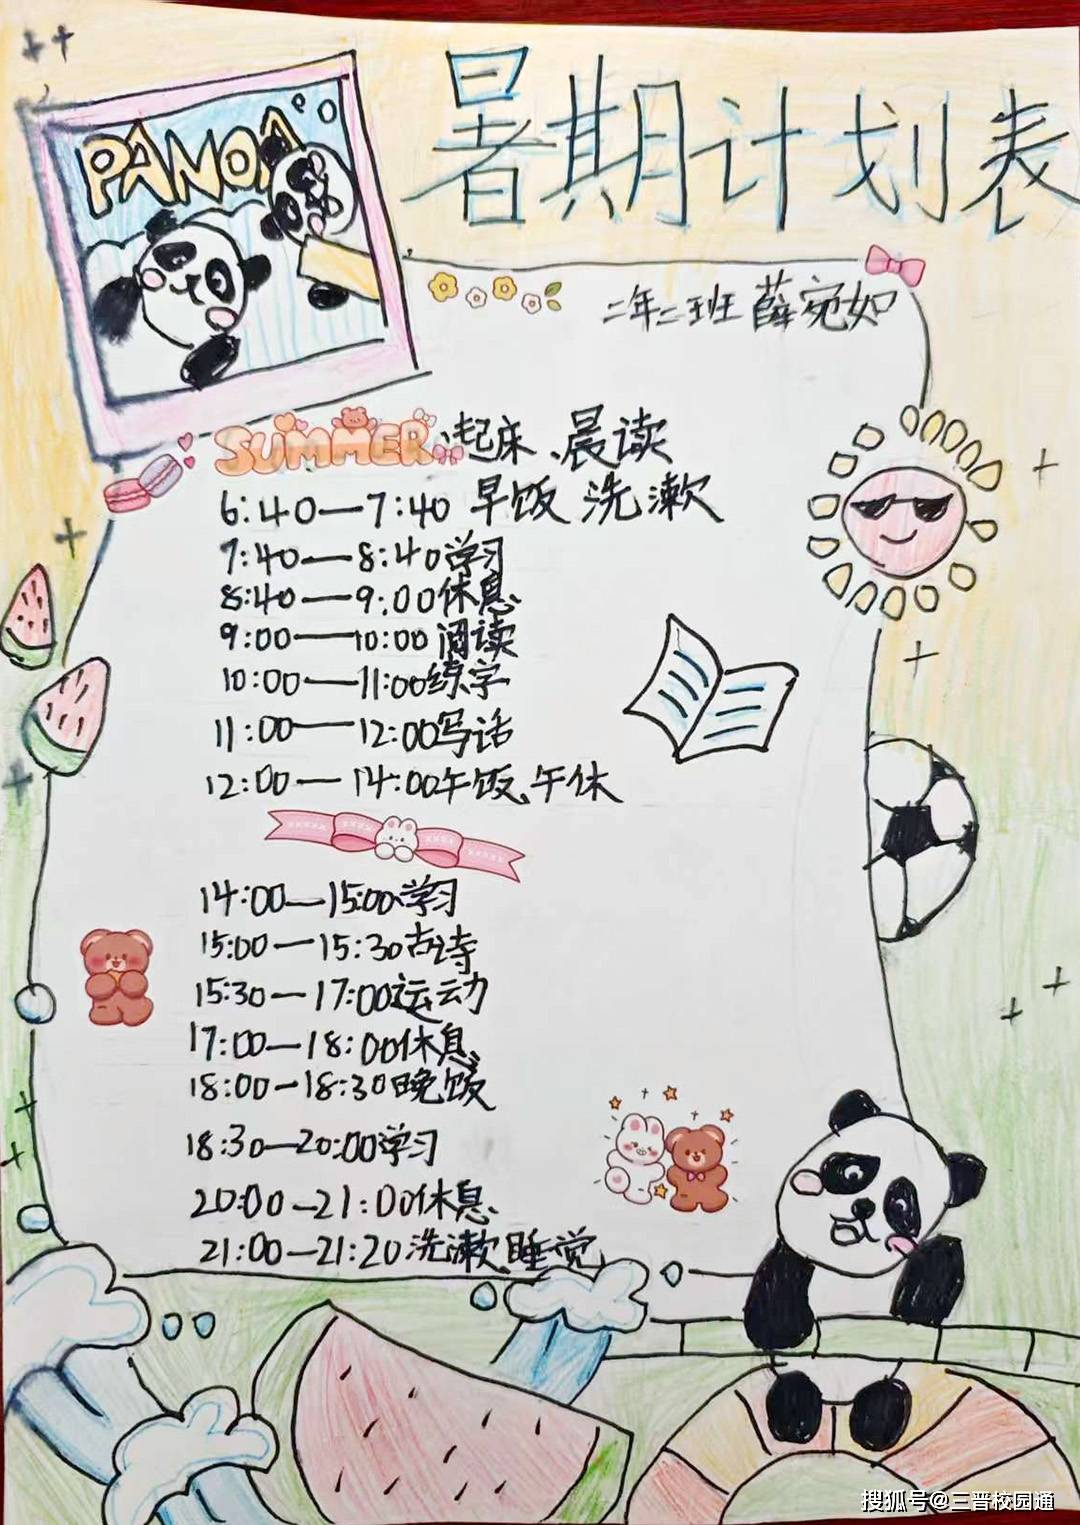 PANDA
暑期计划表
二年二班 薛宛如
SUMMER 起床、晨读
6:40—7:40 早饭 洗漱
7:40—8:40学习
8:40—9:00休息
9:00—10:00阅读
10:00—11:00练字
11:00—12:00写话
12:00—14:00午饭、午休
14:00—15:00学习
15:00—15:30古诗
15:30—17:00运动
17:00—18:00休息
18:00—18:30晚饭
18:30—20:00学习
20:00—21:00休息
21:00—21:20洗漱、睡觉
搜狐号@三晋校园通